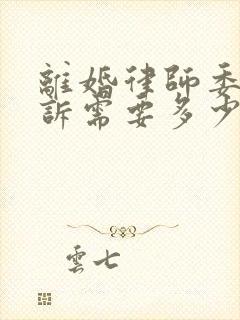 離婚律師委
訴需要多少
雲七